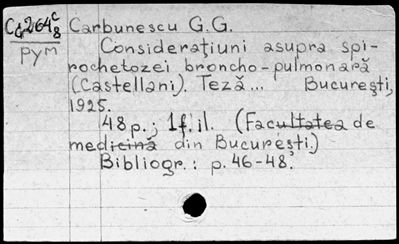 C4264c8 Carbunescu G.G.
рум Considerațiuni asupra spi-
rochetozei broncho-pulmonară
(Castellani). Teză... București,
1925.
48p.; 1f. il. (Facultatea de
medicină din București.)
Bibliogr.: p. 46-48.